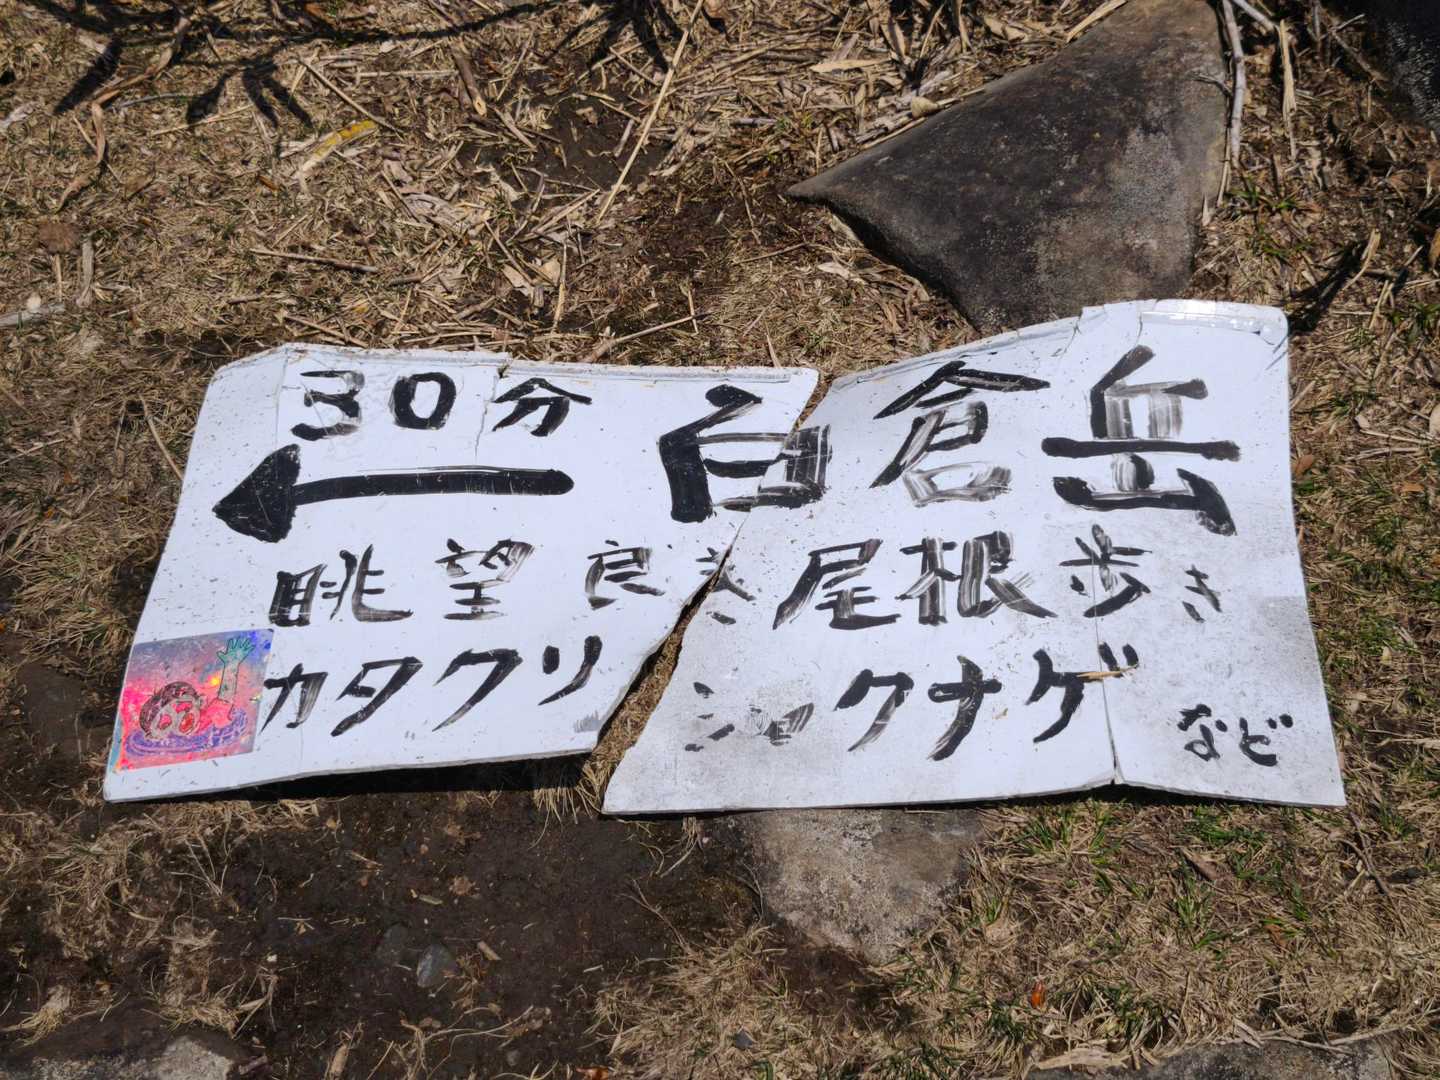 30分 白倉岳
眺望良き尾根歩き
カタクリ シャクナゲ など